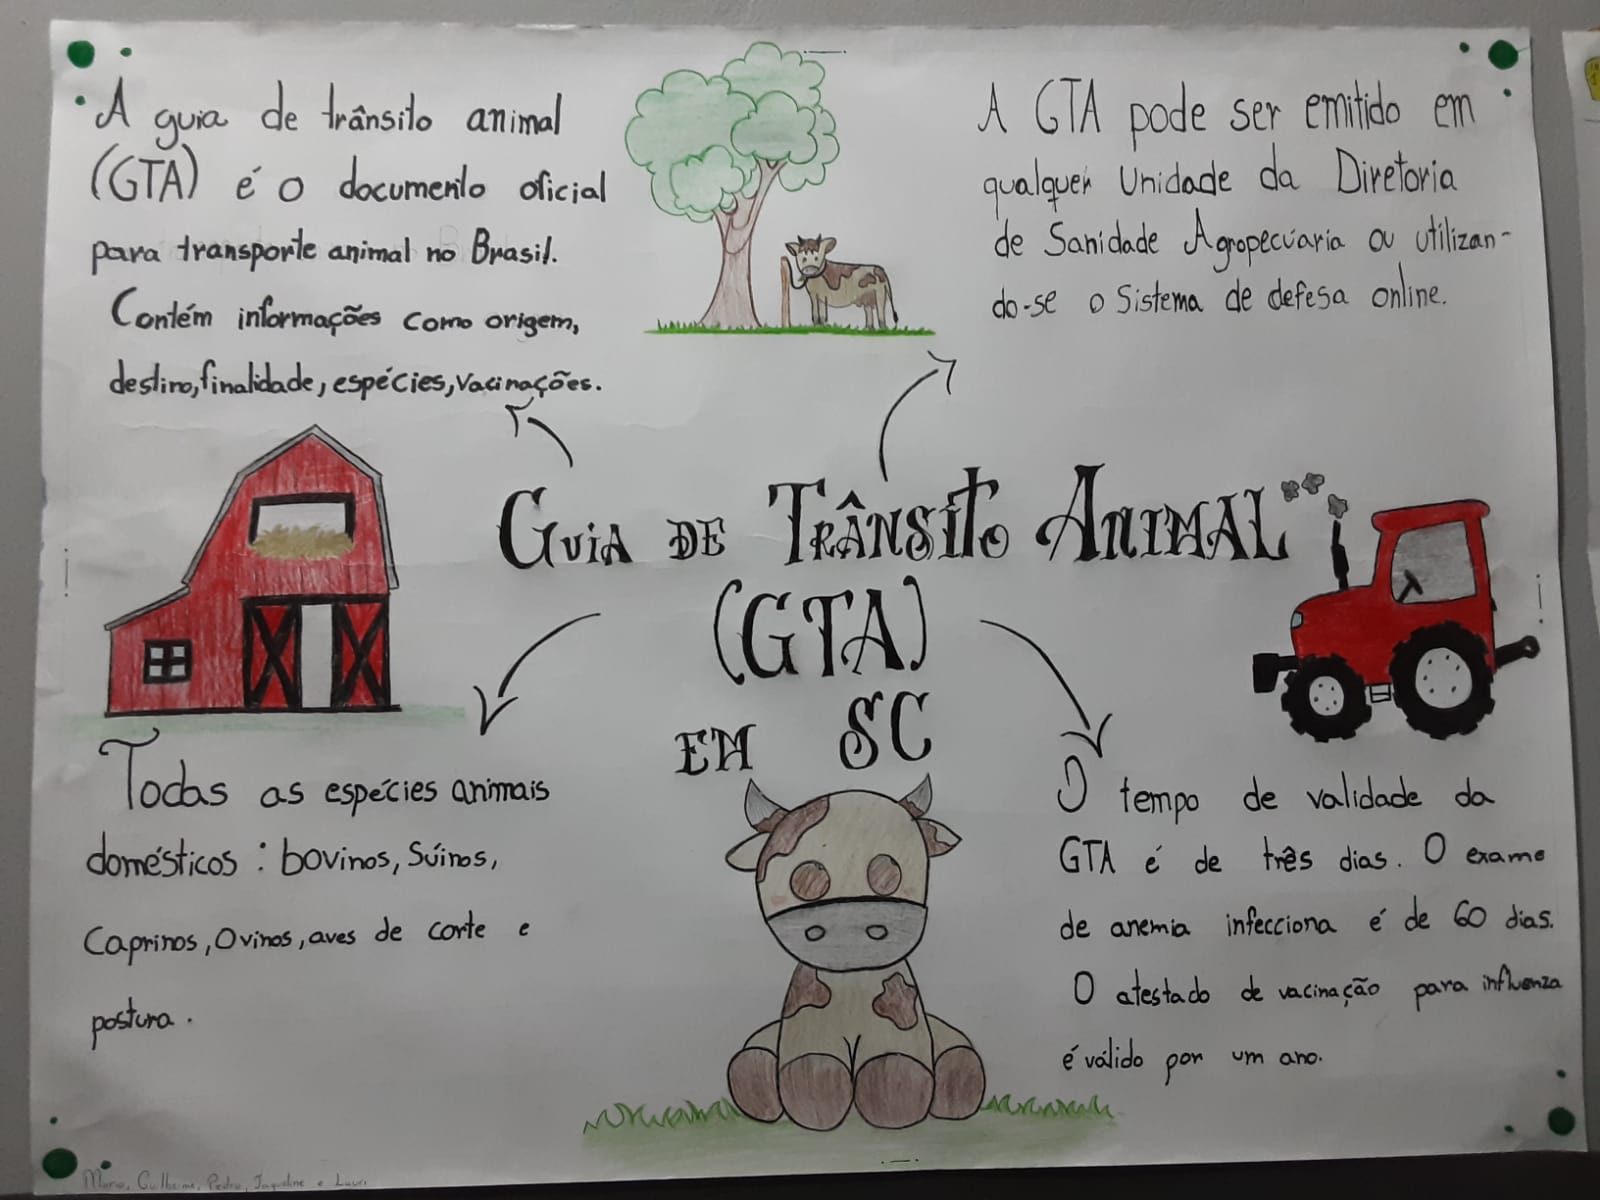 A guia de trânsito animal
(GTA) é o documento oficial
para transporte animal no Brasil.
Contém informações como origem,
destino, finalidade, espécies, vacinações.
A GTA pode ser emitido em
qualquer Unidade da Diretoria
de Sanidade Agropecuaria ou utilizan-
do-se o Sistema de defesa online.
GUIA DE TRÂNSITO ANIMAL
(GTA)
EM SC
Todas as espécies animais
domésticos: bovinos, Súinos,
Caprinos, Ovinos, aves de corte e
postura.
O tempo de validade da
GTA é de três dias. O exame
de anemia infecciona é de 60 dias.
O atestado de vacinação para influenza
é válido por um ano.
Guilherme, Pedro, Jaqueline e